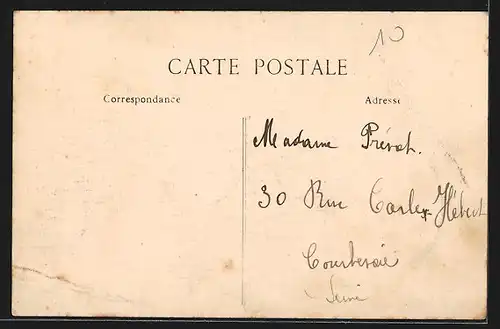 10
CARTE POSTALE
Correspondance
Adresse
Madame Prévot.
30 Rue Carle Hébert
Courbevoie
Seine